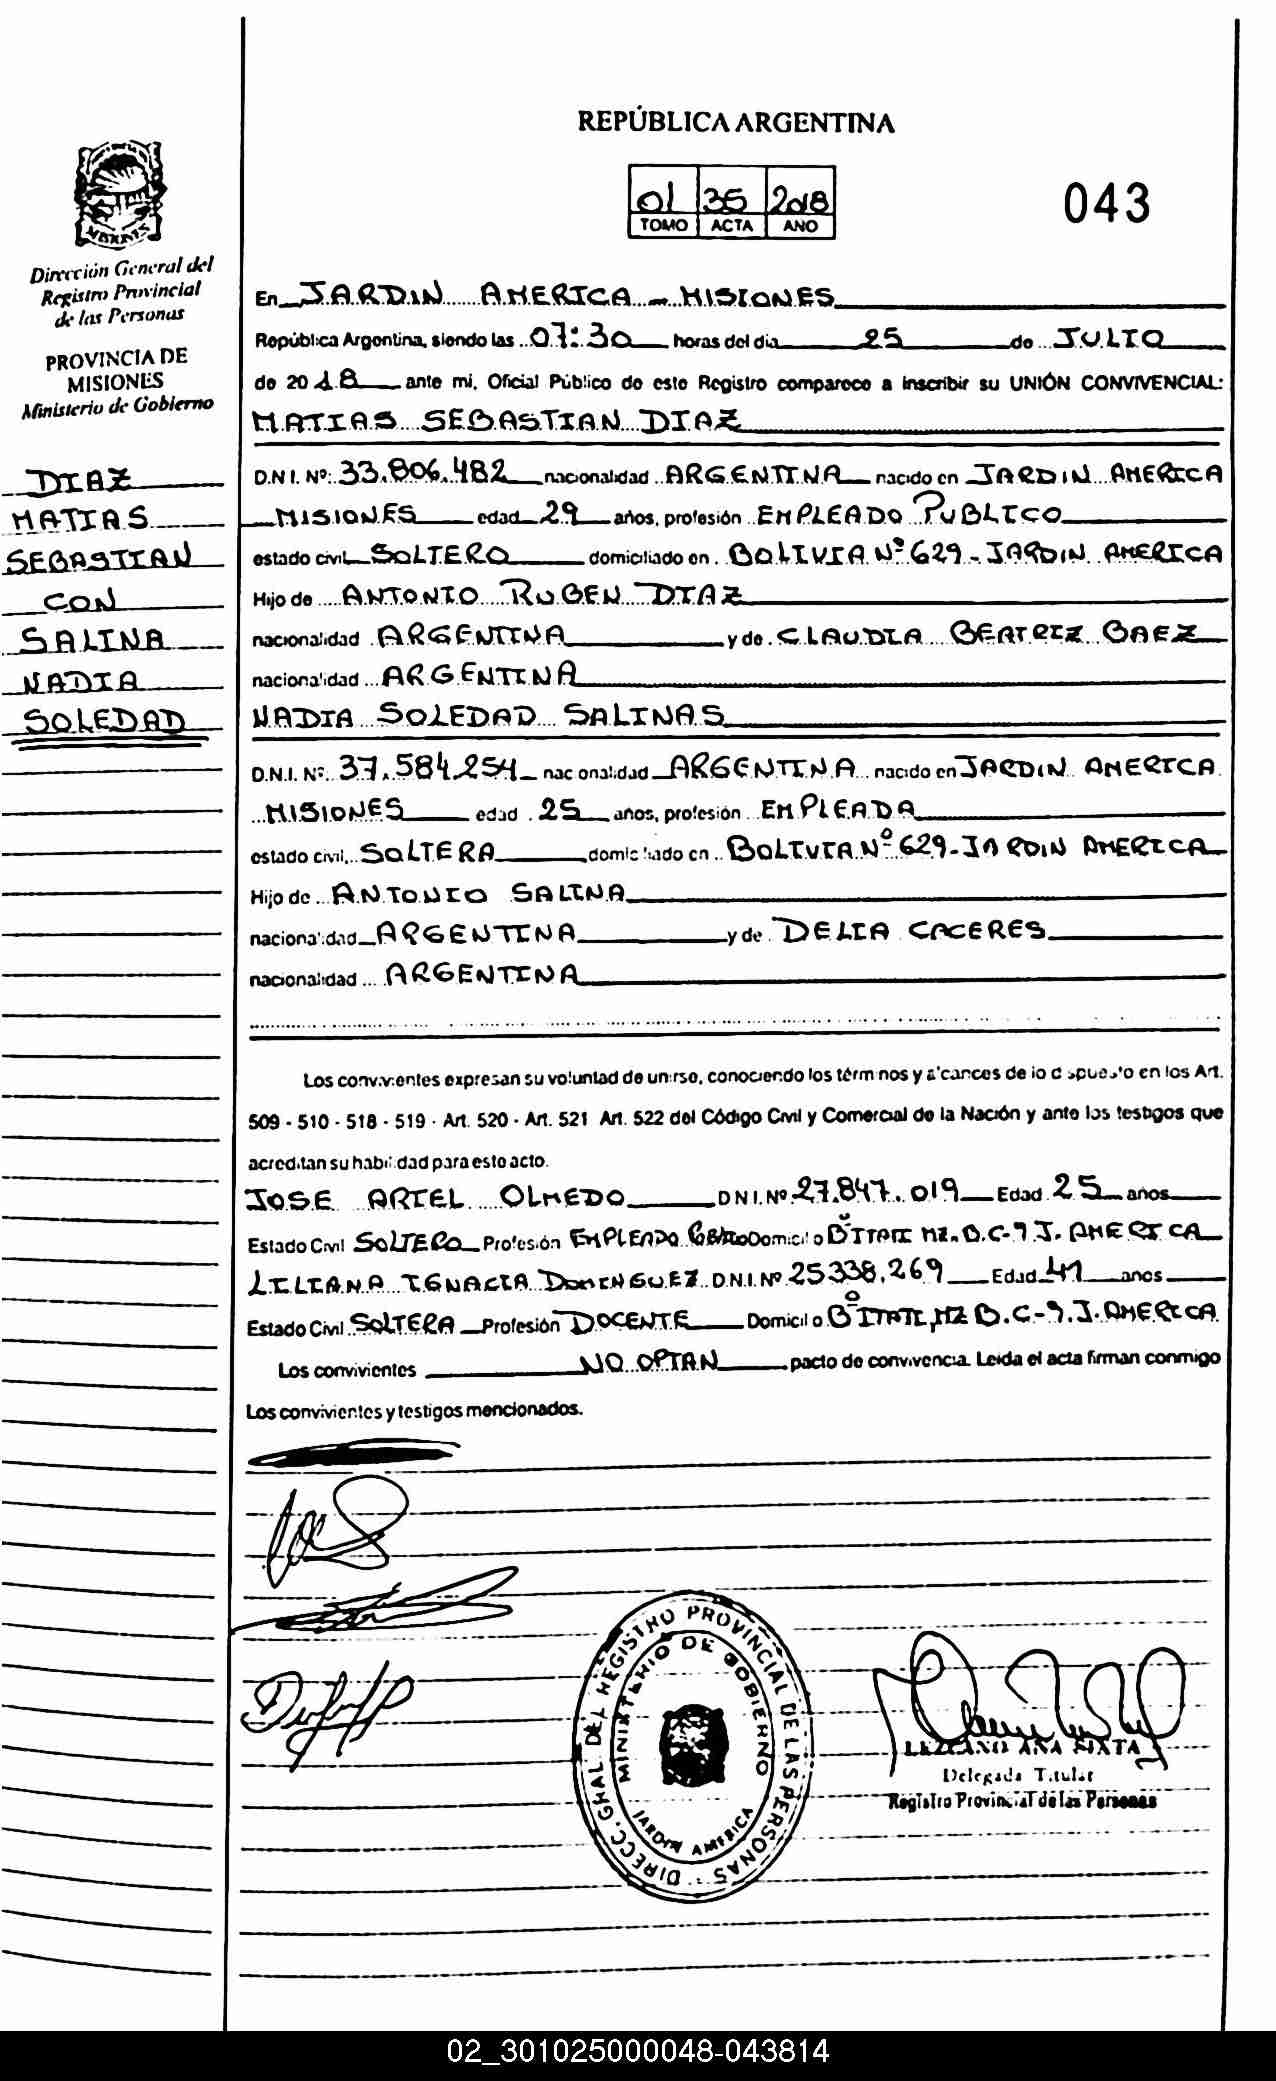 REPÚBLICA ARGENTINA
01 35 2018
TOMO ACTA AÑO
043
MISIONES
Dirección General del
Registro Provincial
de las Personas
PROVINCIA DE
MISIONES
Ministerio de Gobierno
DIAZ
MATIAS
SEBASTIAN
CON
SALINA
NADIA
SOLEDAD
En JARDIN AMERICA - MISIONES
República Argentina, siendo las 07:30 horas del día 25 de JULIO
de 2018 ante mi, Oficial Público de este Registro comparece a inscribir su UNIÓN CONVIVENCIAL:
MATIAS SEBASTIAN DIAZ
D.N.I. Nº: 33.806.482 nacionalidad ARGENTINA nacido en JARDIN AMERICA
MISIONES edad 29 años, profesión EMPLEADO PUBLICO
estado civil SOLTERO domiciliado en BOLIVIA Nº 629 - JARDIN AMERICA
Hijo de ANTONIO RUBEN DIAZ
nacionalidad ARGENTINA y de CLAUDIA BEATRIZ BAEZ
nacionalidad ARGENTINA
NADIA SOLEDAD SALINAS
D.N.I. Nº: 37.584.254 nacionalidad ARGENTINA nacido en JARDIN AMERICA
MISIONES edad 25 años, profesión EMPLEADA
estado civil SOLTERA domiciliado en BOLIVIA Nº 629 - JARDIN AMERICA
Hijo de ANTONIO SALINA
nacionalidad ARGENTINA y de DELIA CACERES
nacionalidad ARGENTINA
Los convivientes expresan su voluntad de unirse, conociendo los términos y alcances de lo dispuesto en los Art.
509 - 510 - 518 - 519 - Art. 520 - Art. 521 Art. 522 del Código Civil y Comercial de la Nación y ante los testigos que
acreditan su habilidad para este acto.
JOSE ARIEL OLMEDO D.N.I. Nº 27.847.019 Edad 25 años
Estado Civil SOLTERO Profesión EMPLEADO Domicilio Bº ITATI MZ. B. C-9 J. AMERICA
LILIANA IGNACIA DOMINGUEZ D.N.I. Nº 25338.269 Edad 41 años
Estado Civil SOLTERA Profesión DOCENTE Domicilio Bº ITATI, MZ B. C-9. J. AMERICA
Los convivientes NO OPTAN pacto de convivencia. Leida el acta firman conmigo
Los convivientes y testigos mencionados.
DIRECC. GRAL DEL REGISTRO PROVINCIAL DE LAS PERSONAS
MINISTERIO DE GOBIERNO
JARDIN AMERICA
LEZCANO ANA SIXTA
Delegada Titular
Registro Provincial de las Personas
02_301025000048-043814